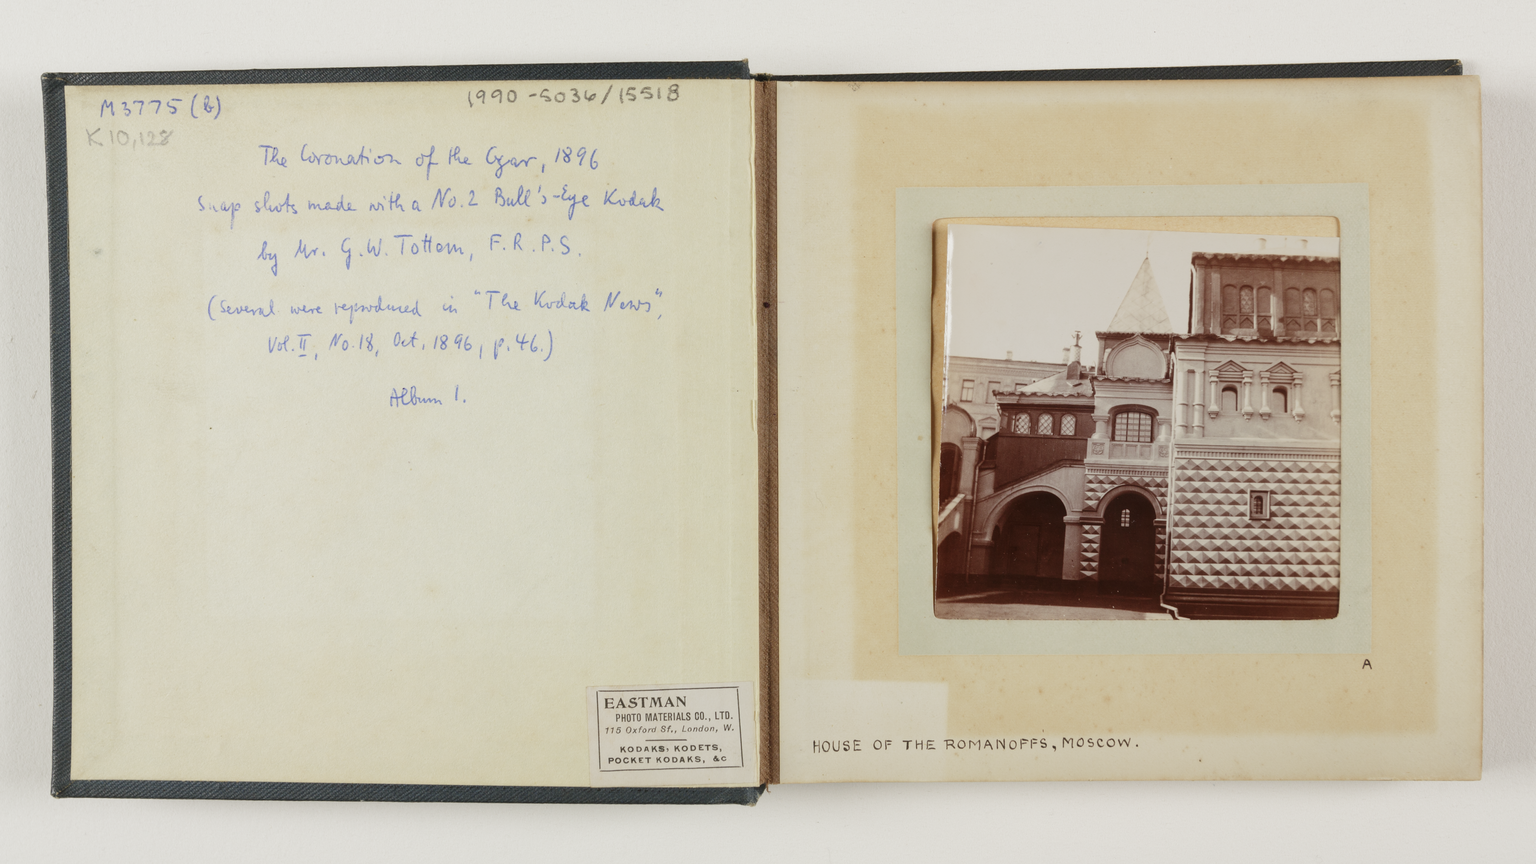 M3775 (b)
1990-5036/15518
K 10,128
The Coronation of the Czar, 1896
Snap shots made with a No. 2 Bull's-Eye Kodak
by Mr. G. W. Tottem, F.R.P.S.
(Several were reproduced in "The Kodak News",
Vol. II, No. 18, Oct. 1896, p. 46.)
Album 1.
EASTMAN
PHOTO MATERIALS CO., LTD.
115 Oxford St., London, W.
KODAKS, KODETS,
POCKET KODAKS, &c
A
HOUSE OF THE ROMANOFFS, MOSCOW.